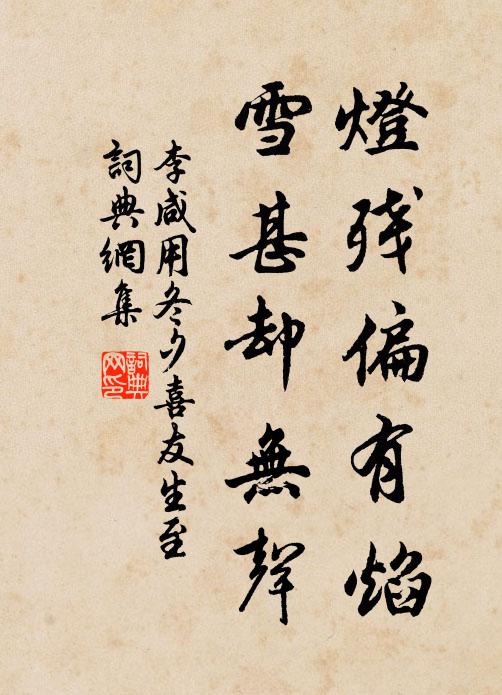 燈殘偏有焰
雪甚却無聲
李咸用冬夕喜友生至
詞典網集
詞典网印